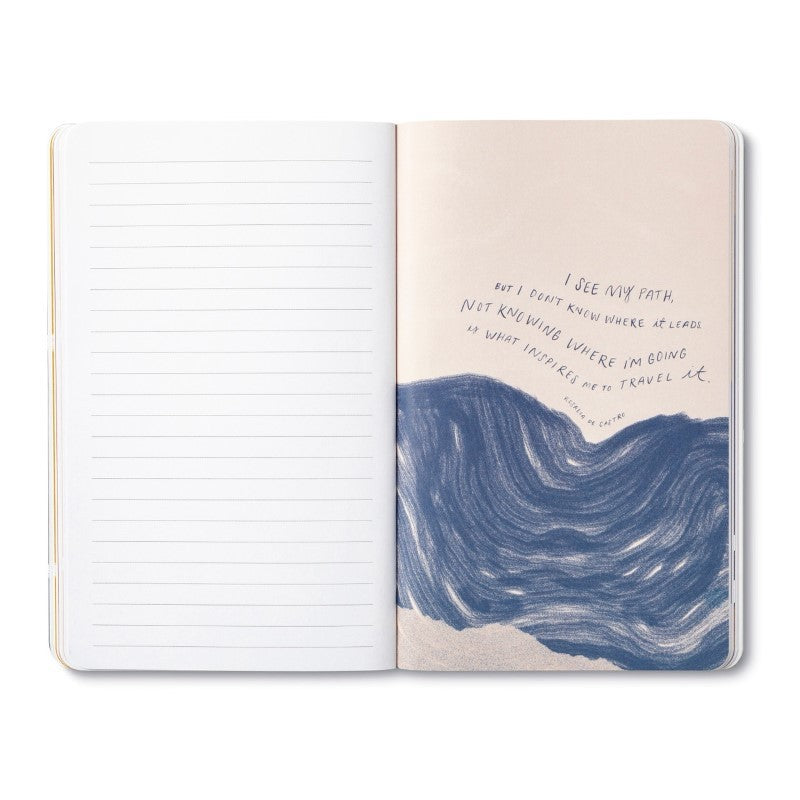 I SEE MY PATH,
BUT I DON'T KNOW WHERE it LEADS.
NOT KNOWING WHERE i'M GOING
is WHAT INSPIRES ME TO TRAVEL it.
ROSALIA DE CASTRO